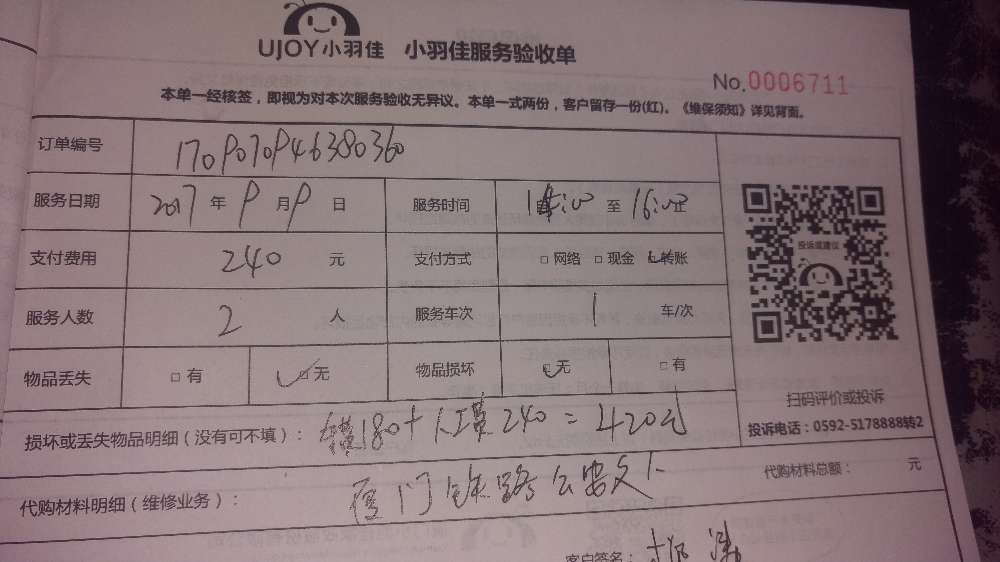 UJOY小羽佳 小羽佳服务验收单
No.0006711
本单一经核签，即视为对本次服务验收无异议。本单一式两份，客户留存一份(红)。《维保须知》详见背面。
订单编号
服务日期 2017 年 9 月 9 日 服务时间 至 16:00 止
支付费用 240 元 支付方式 □网络 □现金 □转账
服务人数 2 人 服务车次 1 车/次
物品丢失 □有 □无 物品损坏 □无 □有
投诉或建议
扫码评价或投诉
投诉电话：0592-5178888转2
损坏或丢失物品明细（没有可不填）： 180+ 240=420元
代购材料明细（维修业务）： 厦门铁路公安 代购材料总额： 元
客户签名：